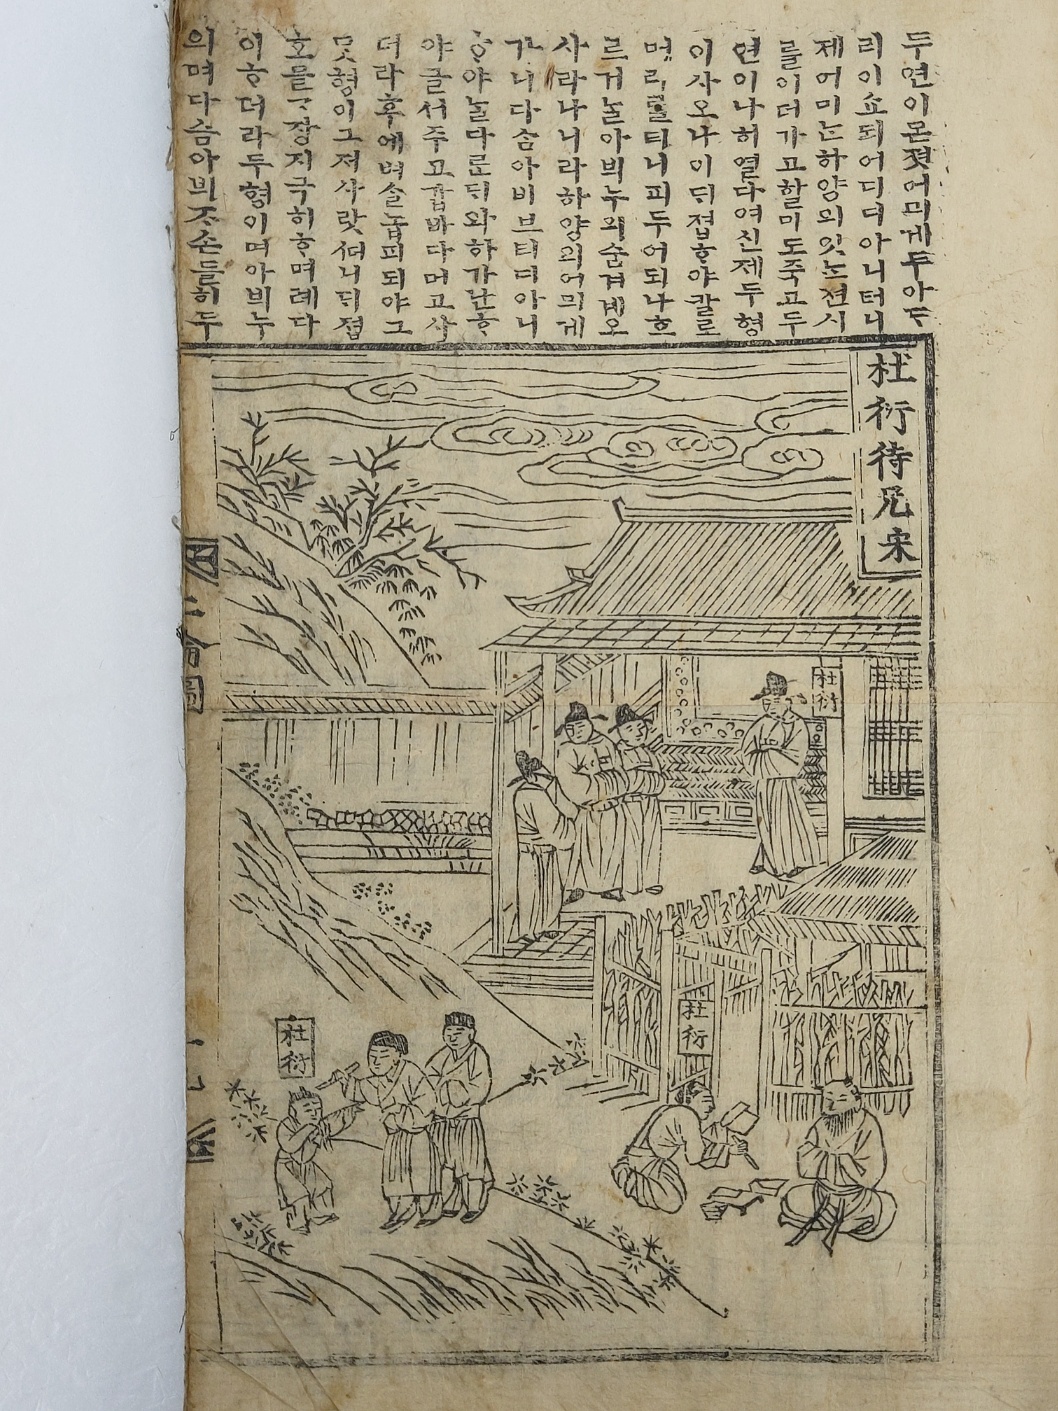 두연이몬졋어믜게두아ᄃᆞ
리이쇼되어디디아니터니
제어미ᄂᆞᆫ하양의잇ᄂᆞᆫ젼시
ᄅᆞᆯ이더가고할미도죽고두
연이나히열다여신제두형
이사오나이ᄃᆡ졉ᄒᆞ야갈로
머리ᄅᆞᆯ티니피두어되나흐
르거ᄂᆞᆯ아븨누의숨겨베오
사라나니라하양의어믜게
가니다ᄉᆞᆷ아비브티디아니
ᄒᆞ야ᄂᆞᆯ다ᄅᆞᆫᄃᆡ와하가난ᄒᆞ
야글서주고갑바다먹고사
더라후에벼슬놉피되야그
ᄆᆞᆺ형이그저사랏써니ᄃᆡ졉
호ᄆᆞᆯᄀᆞ장지극히ᄒᆞ며례다
이ᄒᆞ더라두형이며아븨누
의며다ᄉᆞᆷ아븨ᄌᆞ손들히두
杜衍待兄
杜衍
杜衍
杜衍
二倫圖